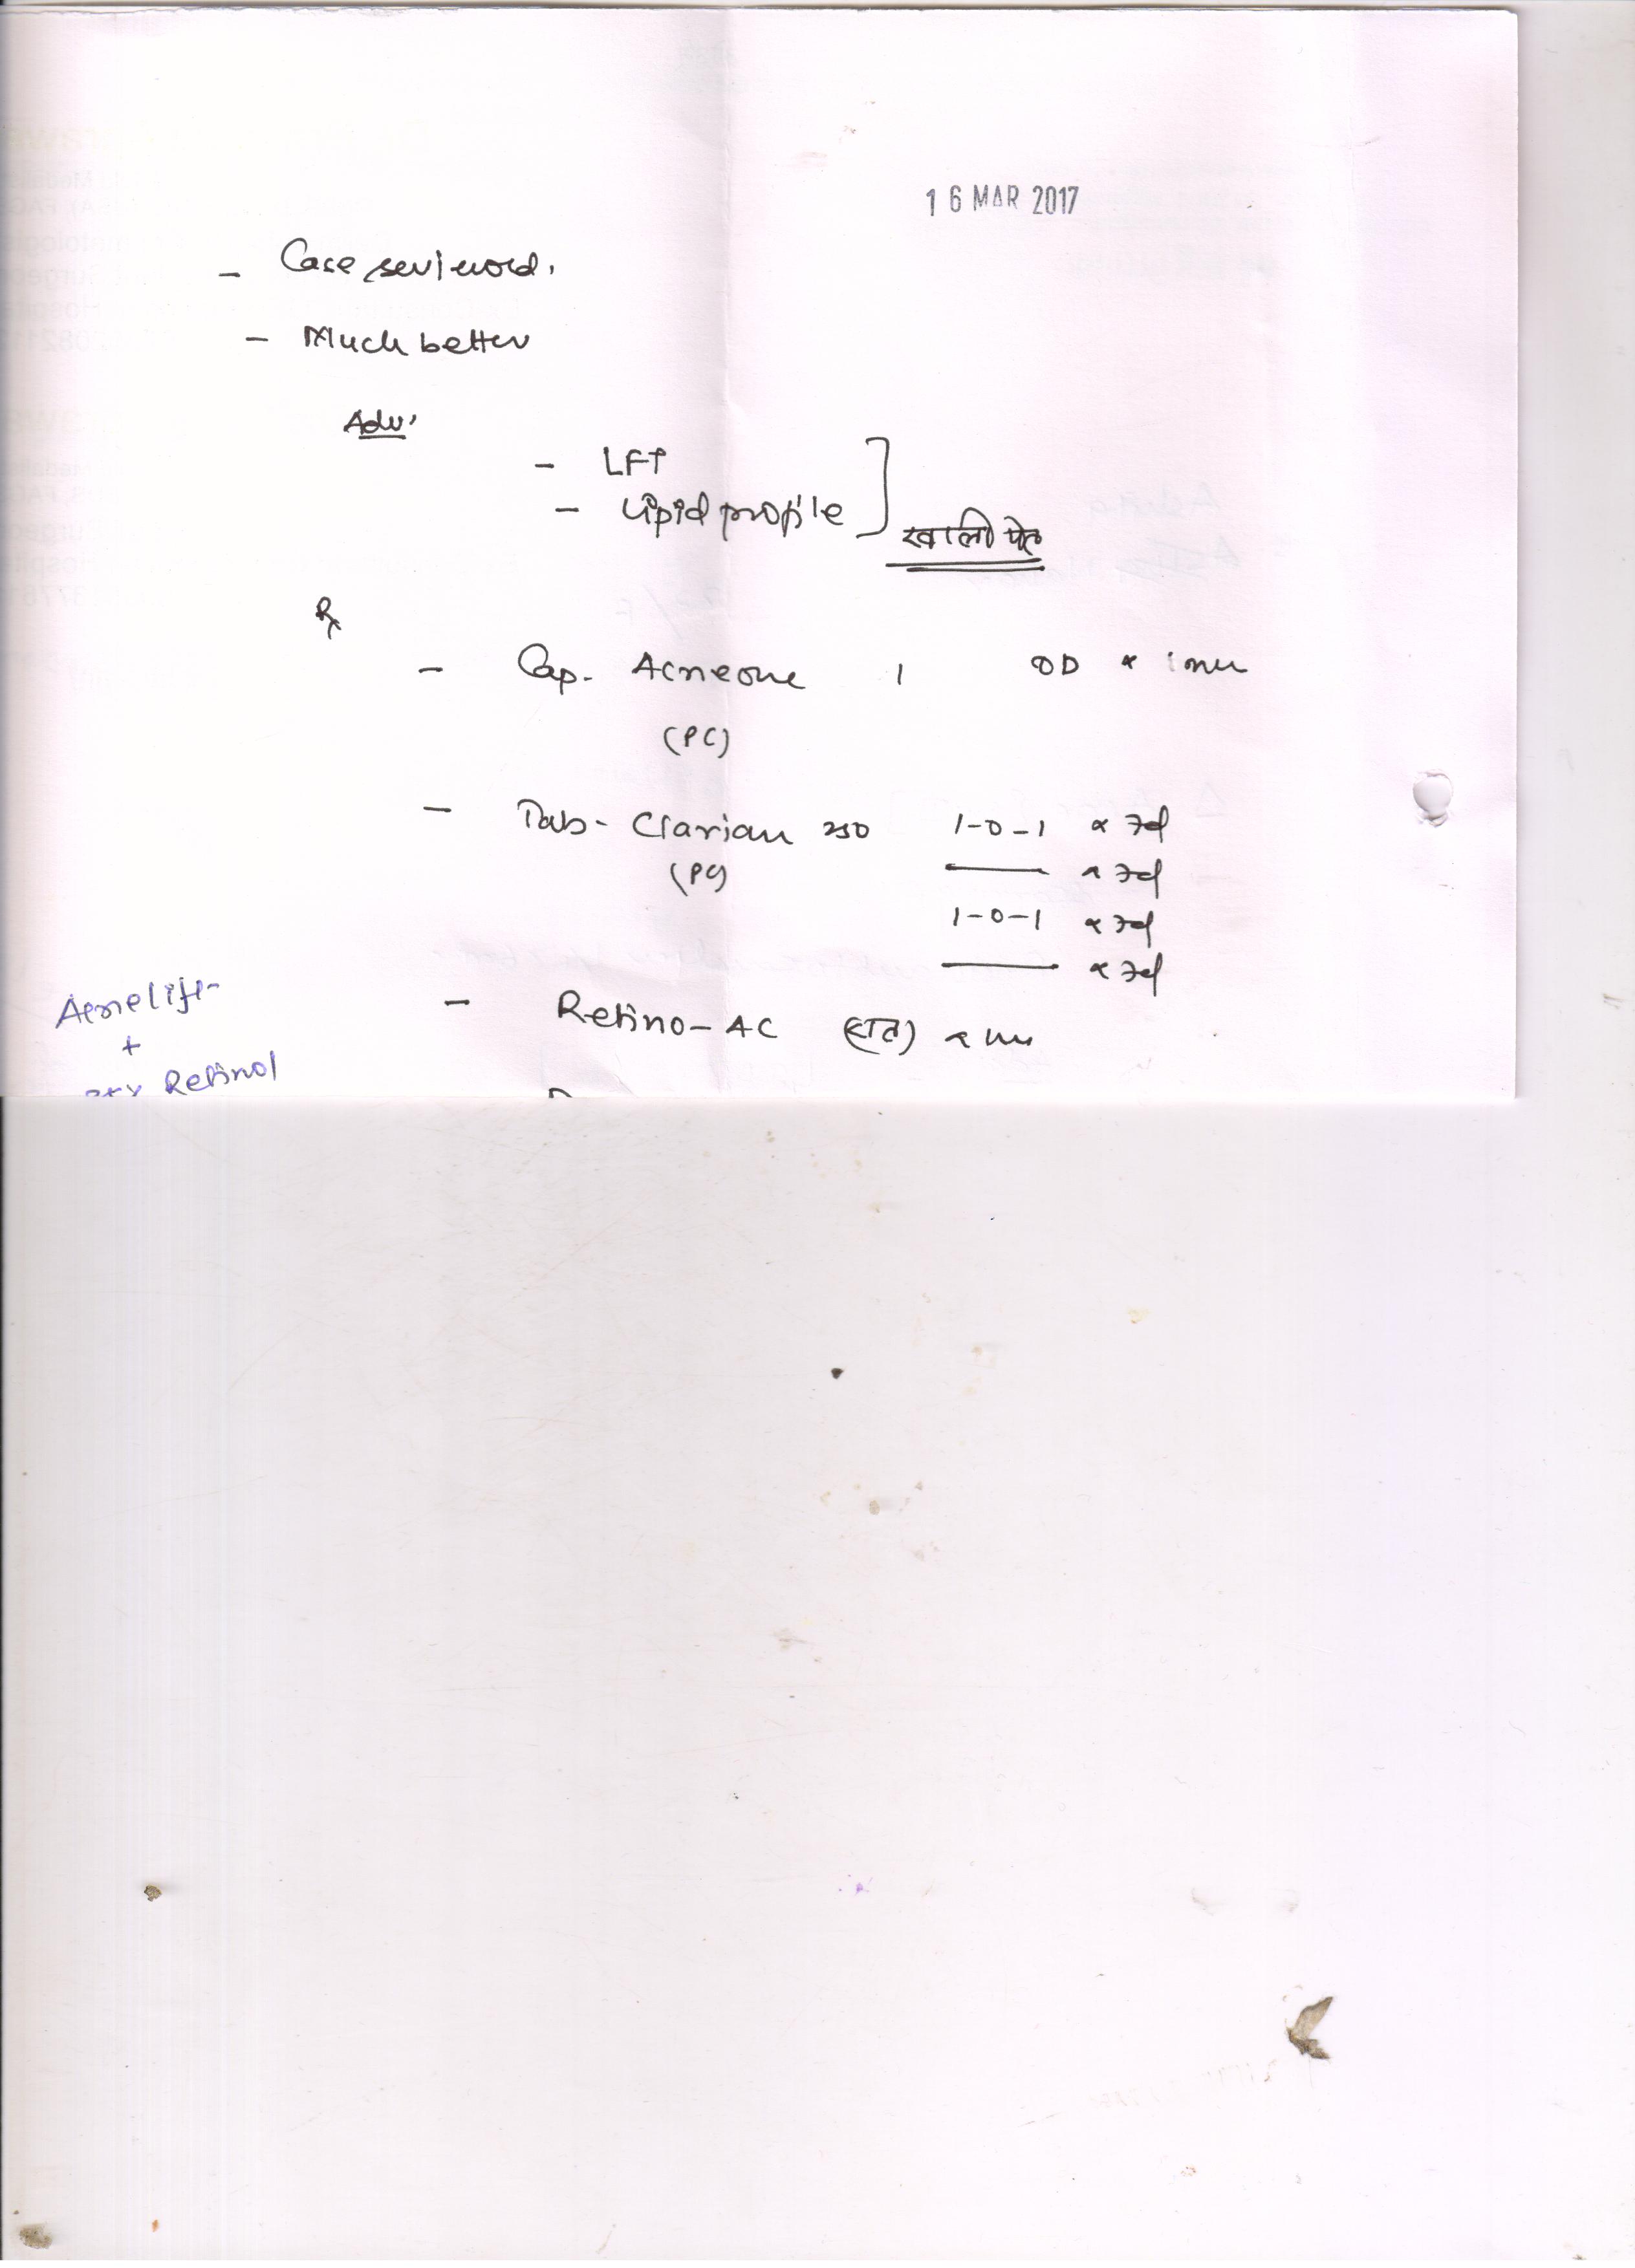 16 MAR 2017
- Case reviewed.
- Much better
Adv.
- LFT
- Lipid profile
खाली पेट
Rx
- Cap. Acneone 1 OD x
(PC)
- Tab- Clarian 250 1-0-1 x 7d
(PC) —— x 7d
1-0-1 x 7d
—— x 7d
- Retino-AC (रात) x
Acnelift
+
Retinol